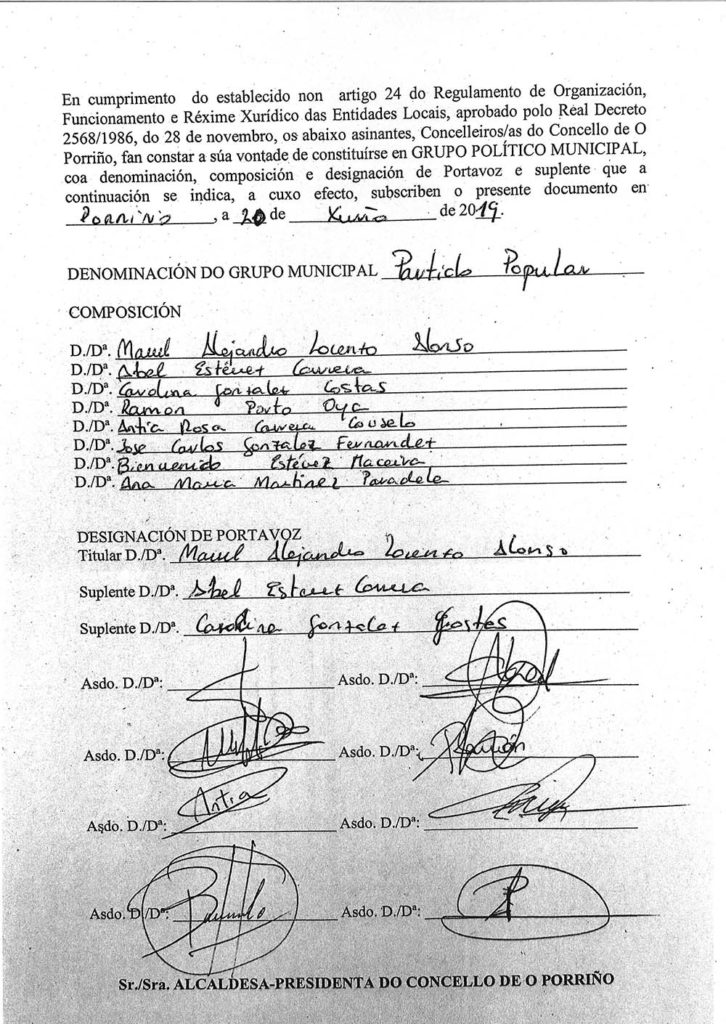 En cumprimento do establecido non artigo 24 do Regulamento de Organización,
Funcionamento e Réxime Xurídico das Entidades Locais, aprobado polo Real Decreto
2568/1986, do 28 de novembro, os abaixo asinantes, Concelleiros/as do Concello de O
Porriño, fan constar a súa vontade de constituírse en GRUPO POLÍTICO MUNICIPAL,
coa denominación, composición e designación de Portavoz e suplente que a
continuación se indica, a cuxo efecto, subscriben o presente documento en
Porriño, a 20 de Xuño de 2019.
DENOMINACIÓN DO GRUPO MUNICIPAL Partido Popular
COMPOSICIÓN
D./Dª. Manuel Alejandro Lorenzo Alonso
D./Dª. Abel Estévez Carrera
D./Dª. Carolina González Costas
D./Dª. Ramon Porto Oya
D./Dª. Antía Rosa Carrera Couselo
D./Dª. Jose Carlos González Fernandez
D./Dª. Bienvenido Estévez Maceira
D./Dª. Ana Maria Martinez Paradela
DESIGNACIÓN DE PORTAVOZ
Titular D./Dª. Manuel Alejandro Lorenzo Alonso
Suplente D./Dª. Abel Estevez Carrera
Suplente D./Dª. Carolina Gonzalez Costas
Asdo. D./Dª: Asdo. D./Dª: Abel
Asdo. D./Dª: Asdo. D./Dª: Ramón
Asdo. D./Dª: Antia Asdo. D./Dª:
Asdo. D./Dª: Asdo. D./Dª:
Sr./Sra. ALCALDESA-PRESIDENTA DO CONCELLO DE O PORRIÑO